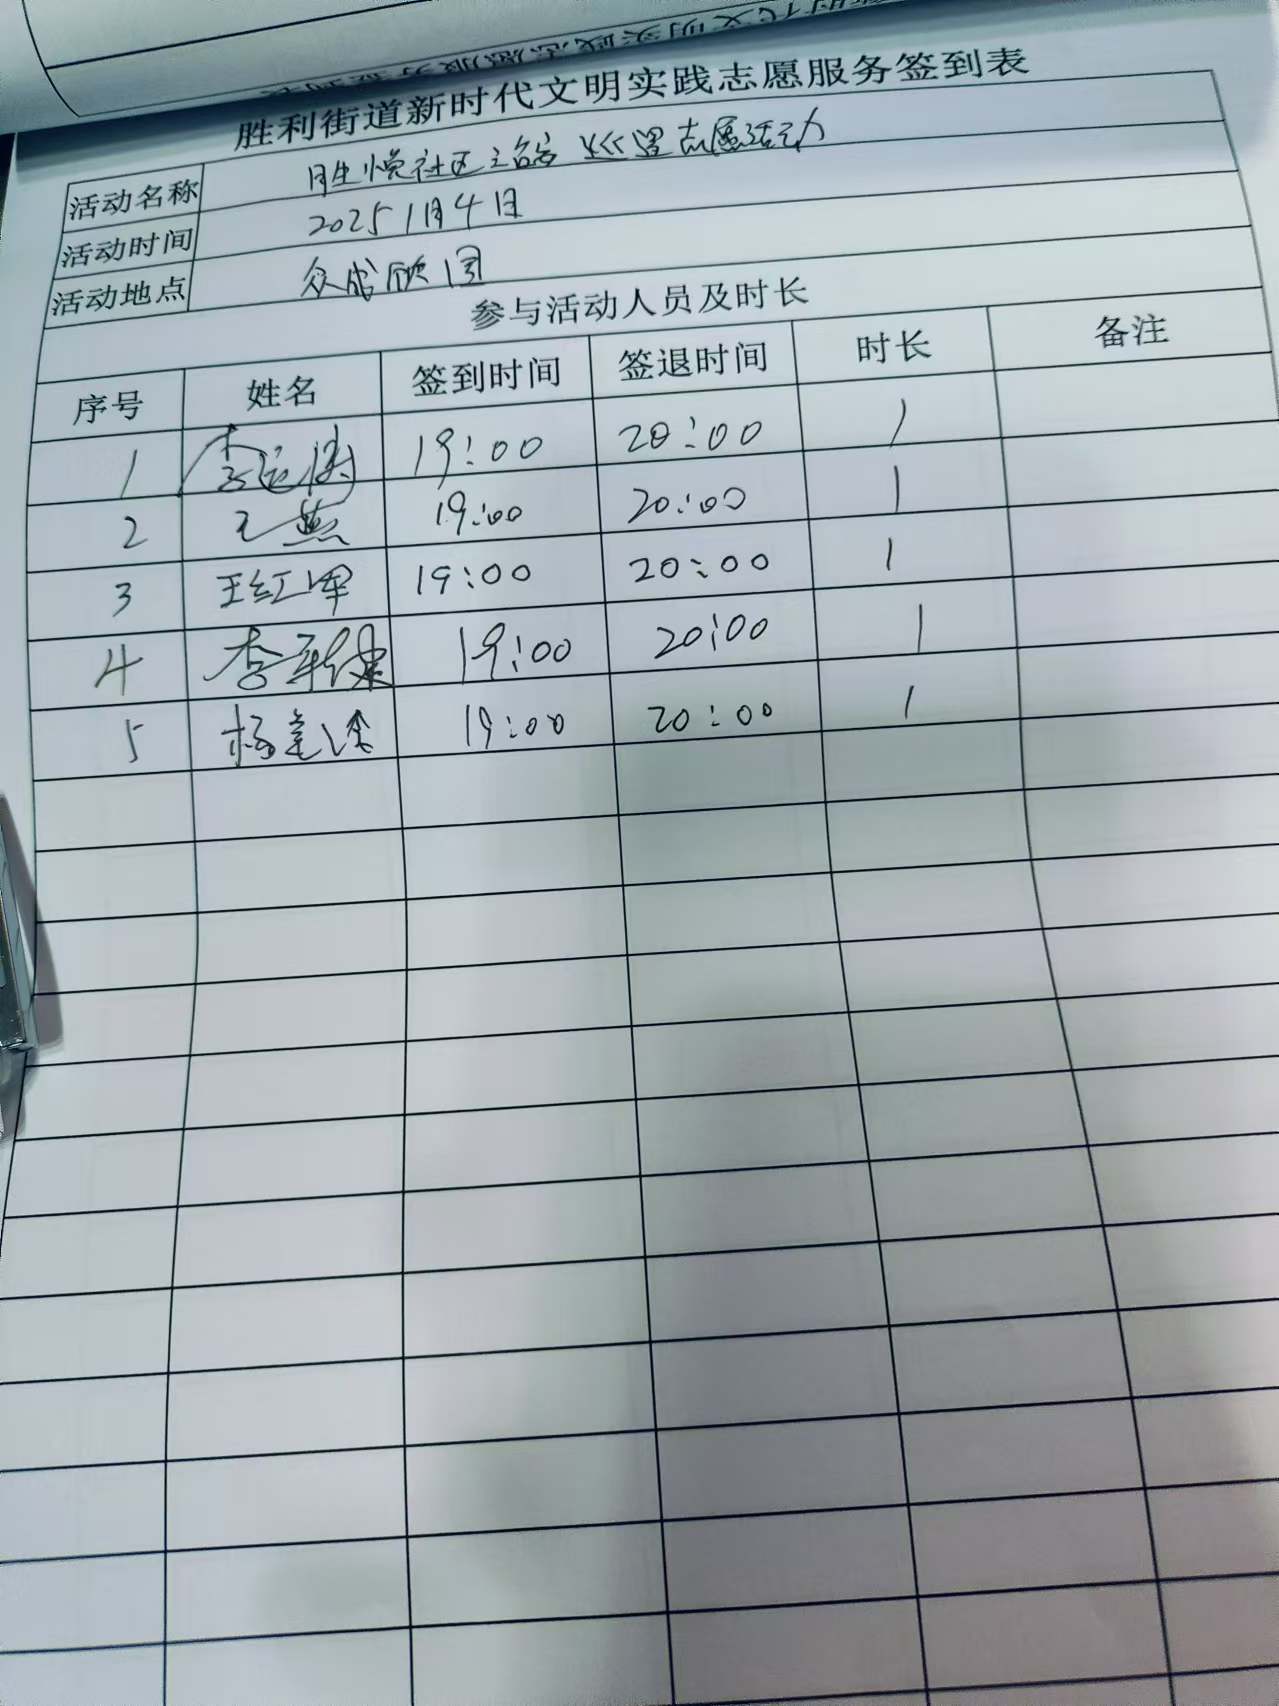 胜利街道新时代文明实践志愿服务签到表
活动名称 胜悦社区 志愿活动
活动时间 2025 1月4日
活动地点
参与活动人员及时长
序号 姓名 签到时间 签退时间 时长 备注
1 李运涛 19:00 20:00 1
2 王燕 19:00 20:00 1
3 王红军 19:00 20:00 1
4 李 19:00 20:00 1
5 杨 19:00 20:00 1